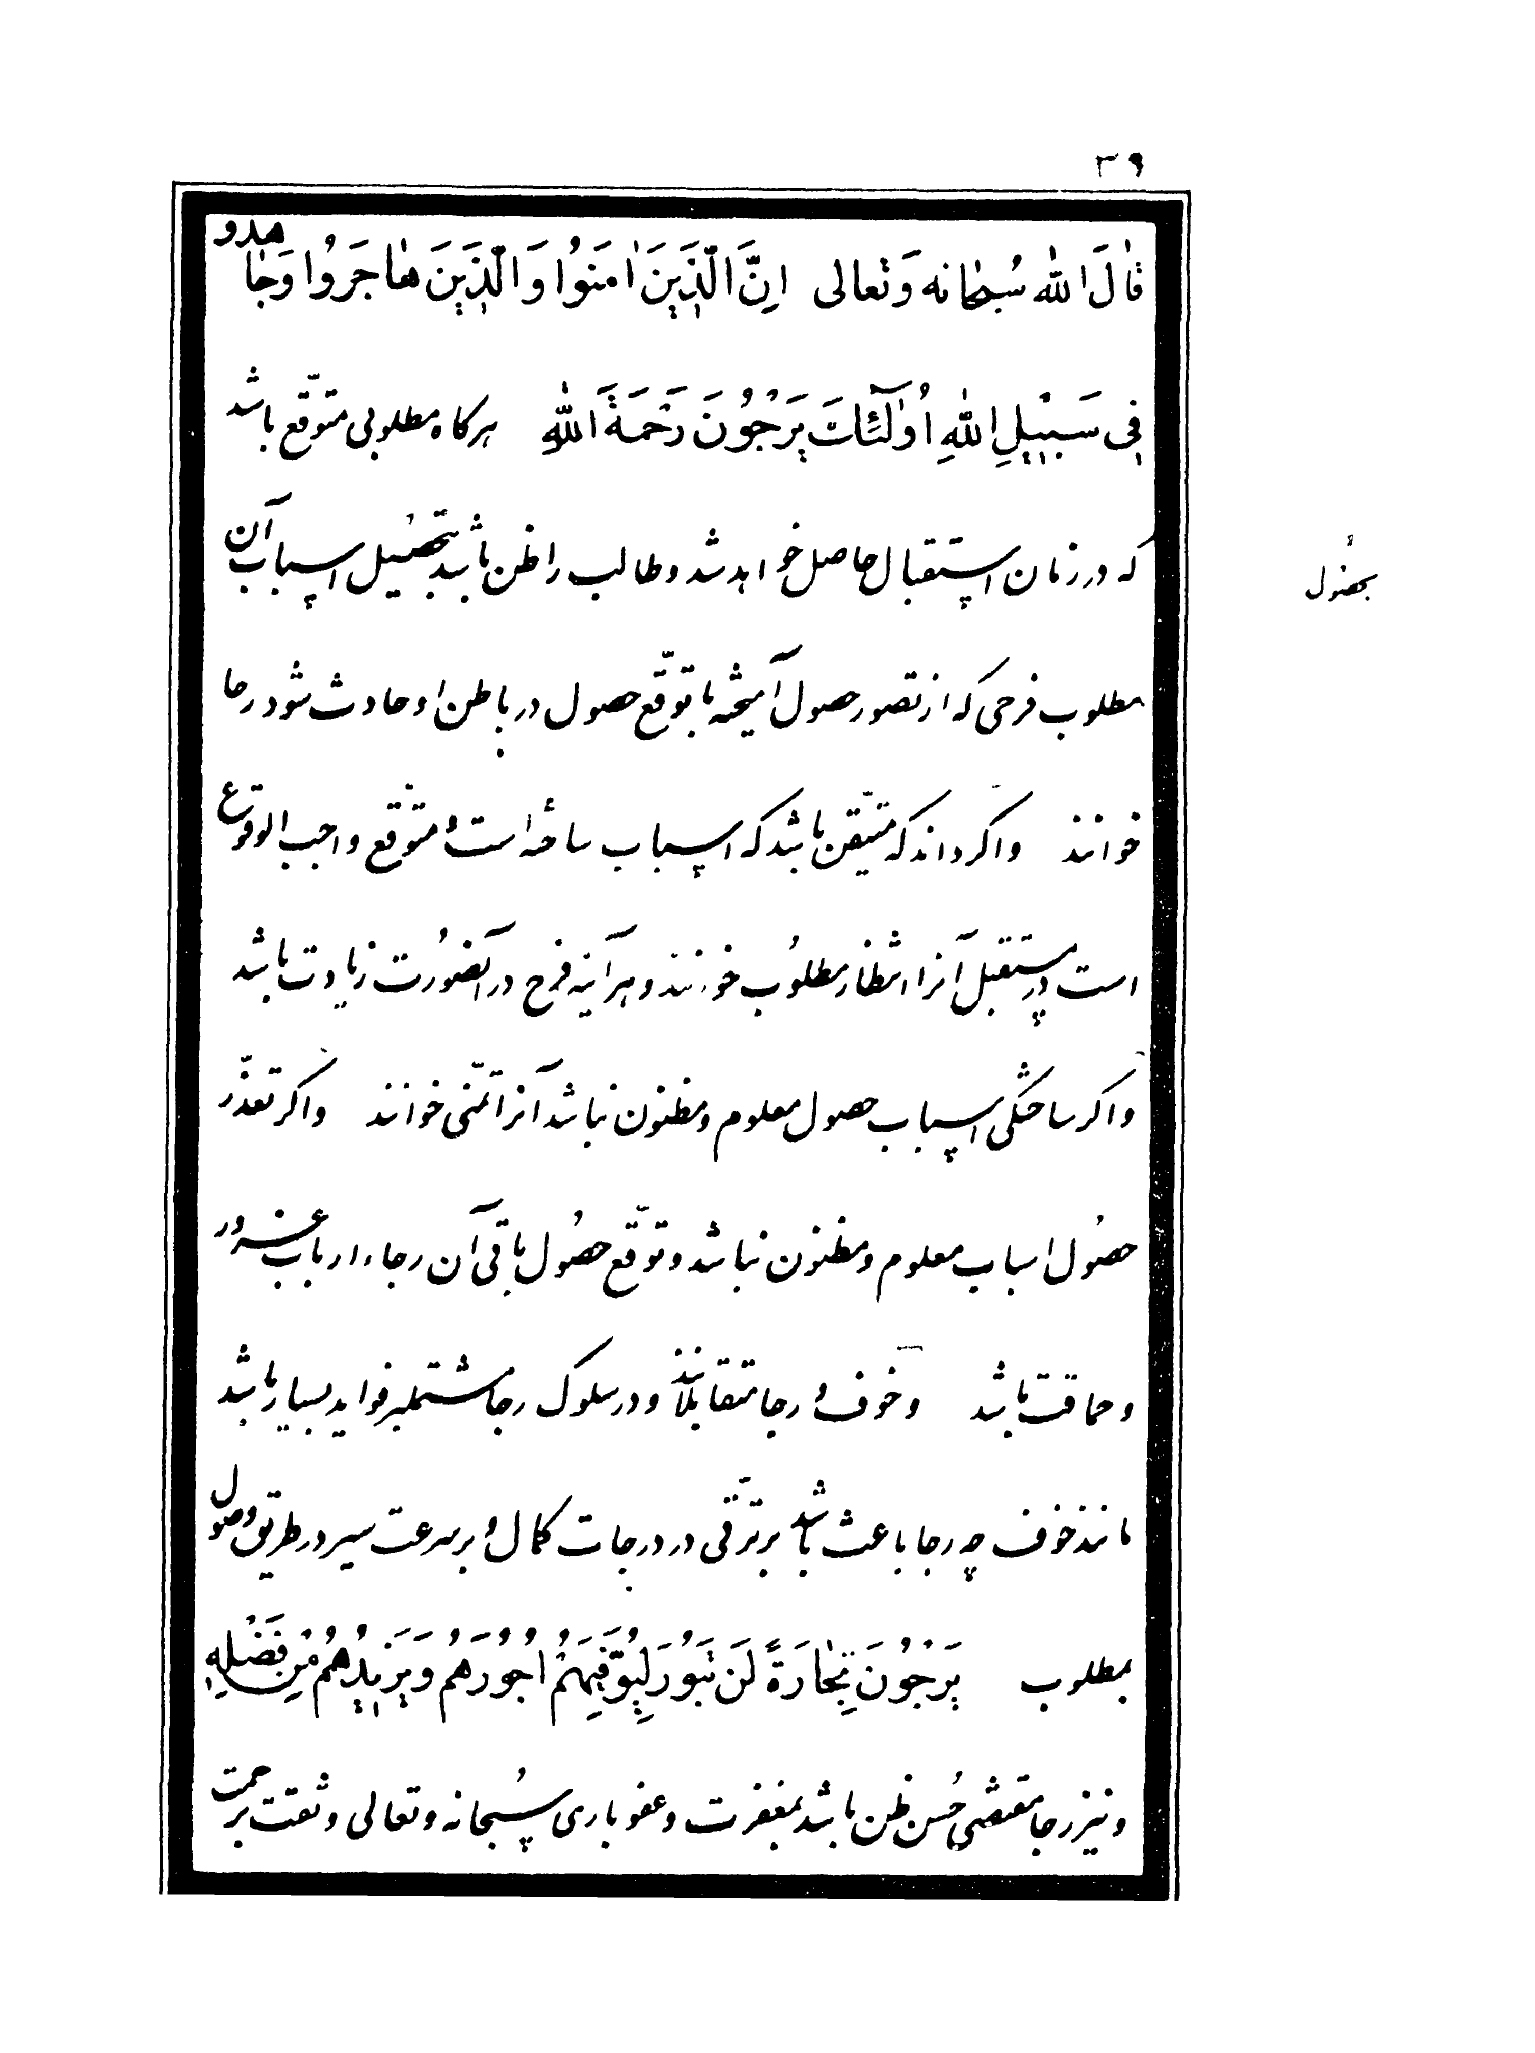 ۳۹
قٰالَ اللّٰه سُبحٰانه وَتَعالى اِنَّ الَّذِینَ اٰمَنُوا وَالَّذِینَ هٰاجَرُوا وَجٰاهدو
فِی سَبیٖلِ اللّٰهِ اُولٰٓئكَ یَرْجُونَ رَحْمَةَ اللّٰهِ هرکاه مطلوبی متوقّع باشد
که در زمان استقبال حاصل خواهد شد و طالب را ظن باشد بتحصیل اسباب آن
بحصُول
مطلوب فرحی که از تصور حصول آمیخته با توقّع حصول در باطن او حادث شود رجا
خوانند و اکر داند که متیقن باشد که اسباب ساخته است و متوقع واجب الوقوع
است در مستقبل آنرا انتظار مطلوُب خوانند و هر آینه فرح در آنصُورت زیادت باشد
و اکر ساختکی اسباب حصول معلوم و مظنون نباشد آنرا تمنّی خوانند و اکر تعذّر
حصُول اسباب معلوم و مظنون نباشد و توقّع حصُول باقی آن رجاء ارباب غرور
و حماقت باشد و خوف و رجا متقابلاند و در سلوک رجا مشتملبر فواید بسیار باشد
مانند خوف چه رجا باعث باشد بر ترقّی در درجات کمال و بر سرعت سیر در طریق وصول
بمطلوب یَرْجُونَ تِجٰارَةً لَن تَبُورَ لِیُوَفِّیَهُمْ اُجُورَهُم وَیَزیٖدُهُم مِن فَضْلِهِ
و نیز رجا مقتضی حُسن ظن باشد بمغفرت و عفو باری سُبحانه و تعالی و ثقت برحمت